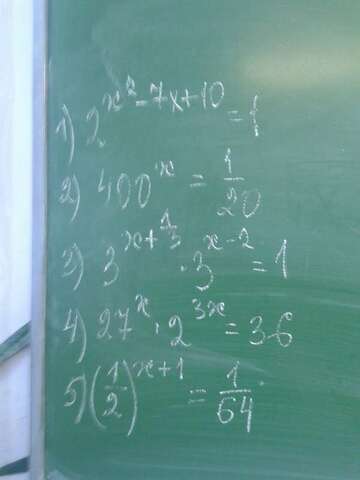 1) 2^{x^2-7x+10} = 1
2) 400^x = \frac{1}{20}
3) 3^{x+\frac{1}{3}} \cdot 3^{x-2} = 1
4) 27^x \cdot 2^{3x} = 36
5) (\frac{1}{2})^{x+1} = \frac{1}{64}